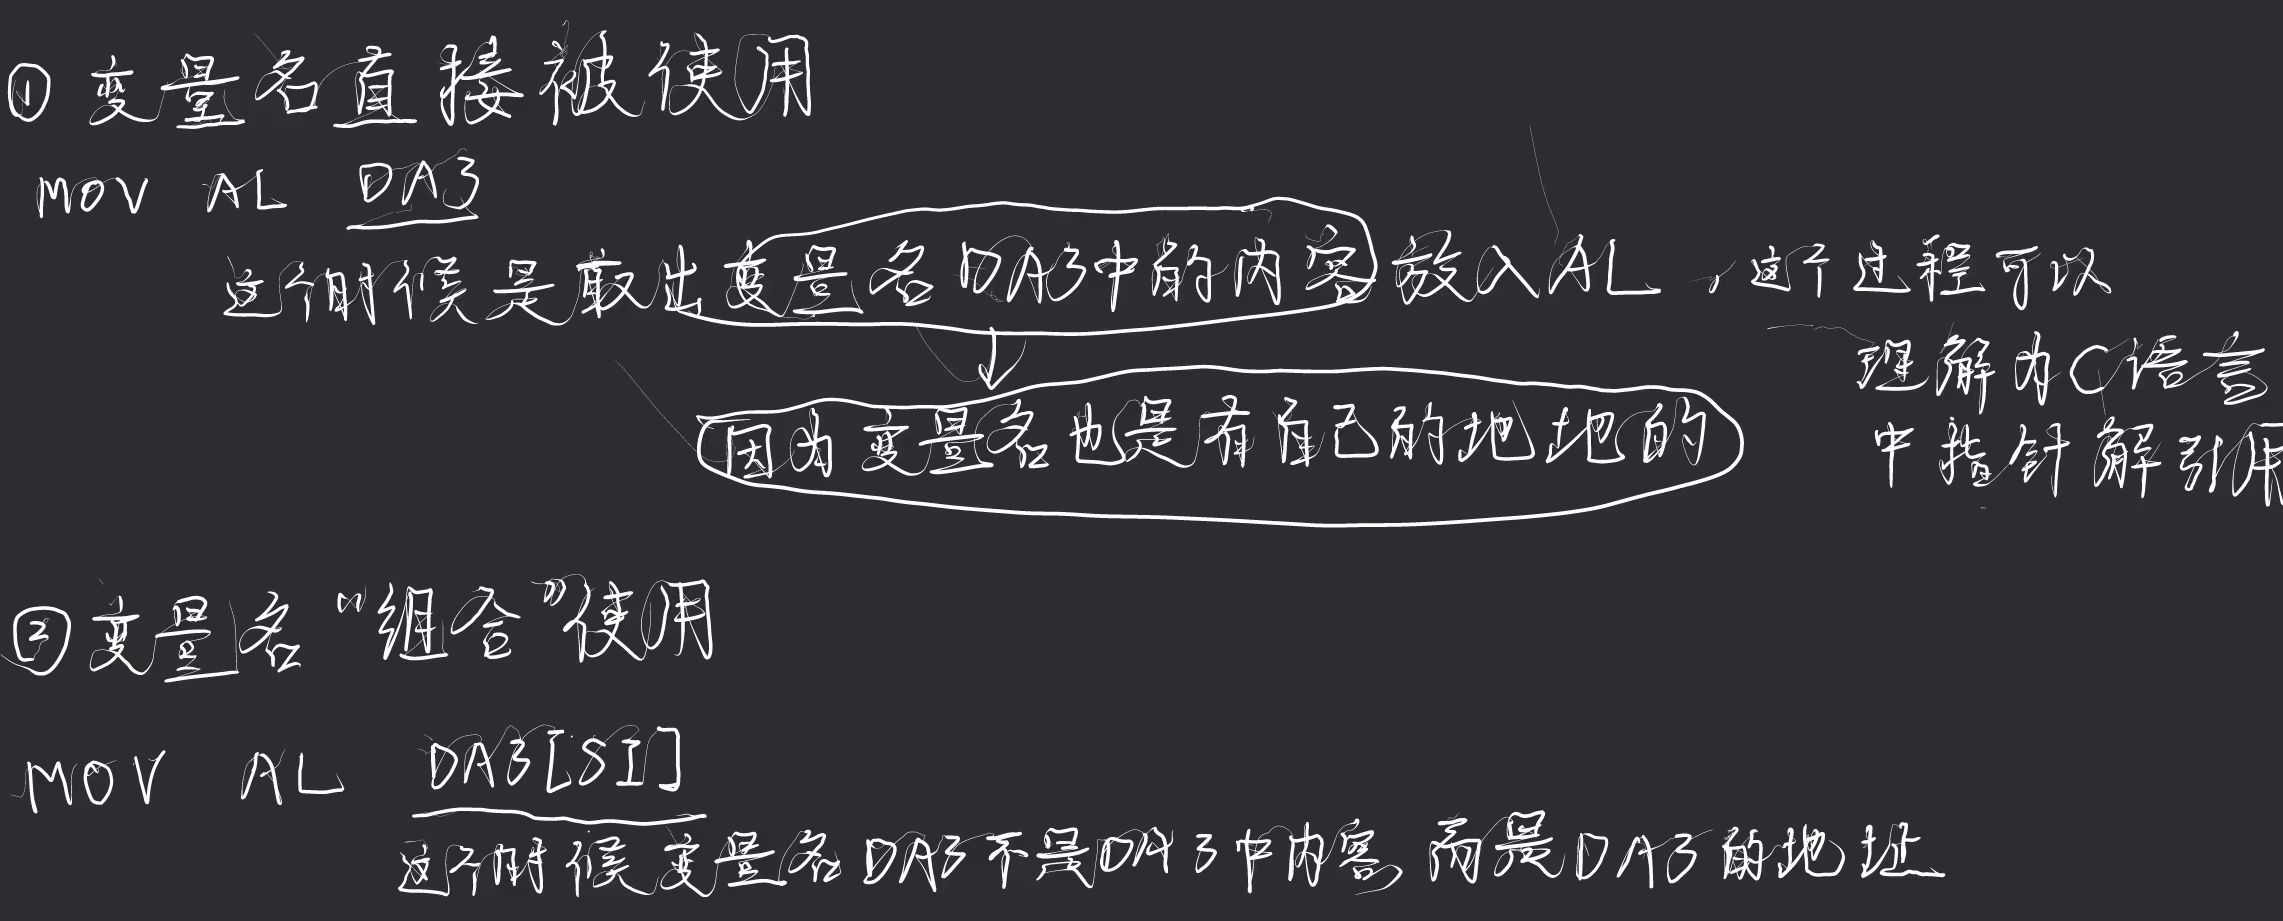 ① 变量名直接被使用
MOV AL DA3
这个时候是取出变量名DA3中的内容放入AL,这个过程可以
理解为C语言
中指针解引用
因为变量名也是有自己的地地的
② 变量名“组合”使用
MOV AL DA3[SI]
这个时候变量名DA3不是DA3中内容而是DA3的地址